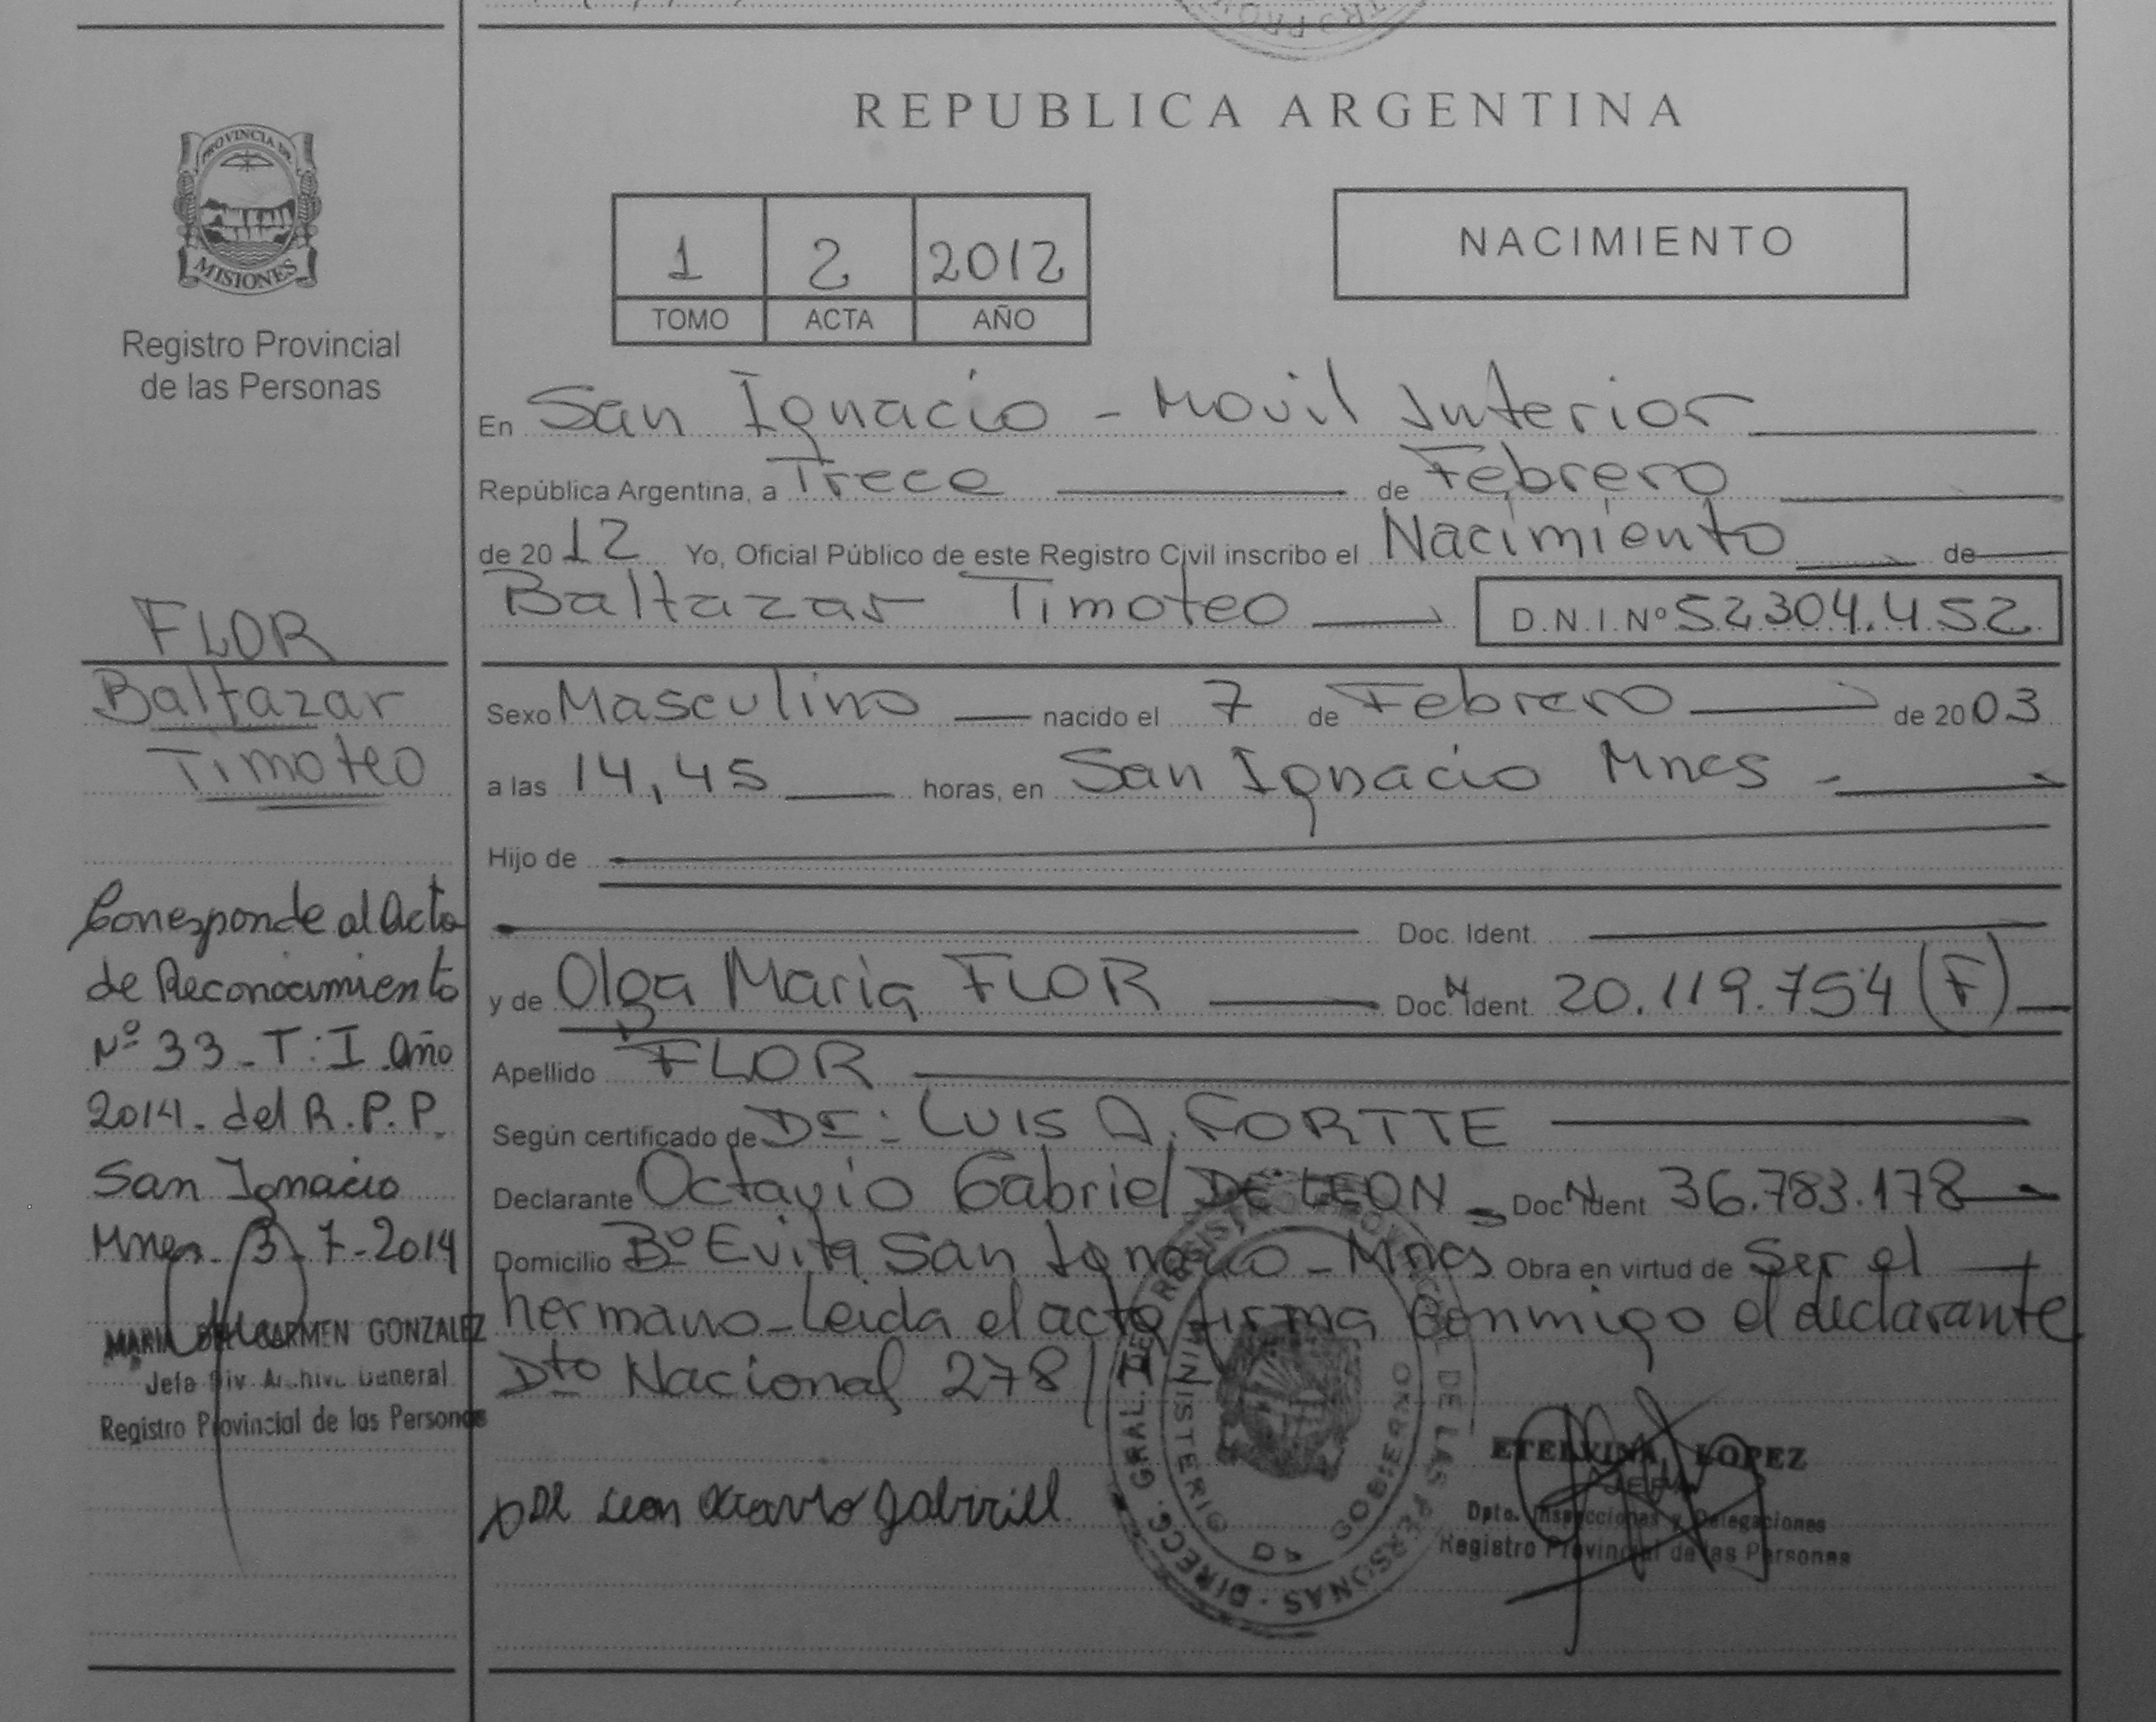 REPUBLICA ARGENTINA
PROVINCIA DE
MISIONES
Registro Provincial
de las Personas
1 2 2012
TOMO ACTA AÑO
NACIMIENTO
En San Ignacio - Movil Interior
República Argentina, a Trece de Febrero
de 2012 Yo, Oficial Público de este Registro Civil inscribo el Nacimiento de
Baltazar Timoteo D.N.I.Nº 52304.452
FLOR
Baltazar
Timoteo
Sexo Masculino nacido el 7 de Febrero de 2003
a las 14,45 horas, en San Ignacio Mnes -
Hijo de
Doc. Ident.
y de Olga Maria FLOR Doc. N Ident 20.119.754 (F)
Apellido FLOR
Según certificado de Dr: LUIS A. FORTTE
Declarante Octavio Gabriel DE LEON - Doc N Ident 36.783.178
Domicilio Bº Evita San Ignacio - Mnes Obra en virtud de Ser el
hermano - Leida el acta firma conmigo el declarante
Dto Nacional 278/11
Corresponde al Acta
de Reconocimiento
Nº 33 - T: I Año
2014. del R.P.P.
San Ignacio
Mnes. 3-7-2014
MARIA DEL CARMEN GONZALEZ
Jefa Div. Archivo General
Registro Provincial de las Personas
De Leon Octavio Gabriell
DIRECC. GRAL. DEL REGISTRO PROVINCIAL DE LAS PERSONAS
MINISTERIO DE GOBIERNO
ETELVINA LOPEZ
JEFA
Dpto. Inspecciones y Delegaciones
Registro Provincial de las Personas